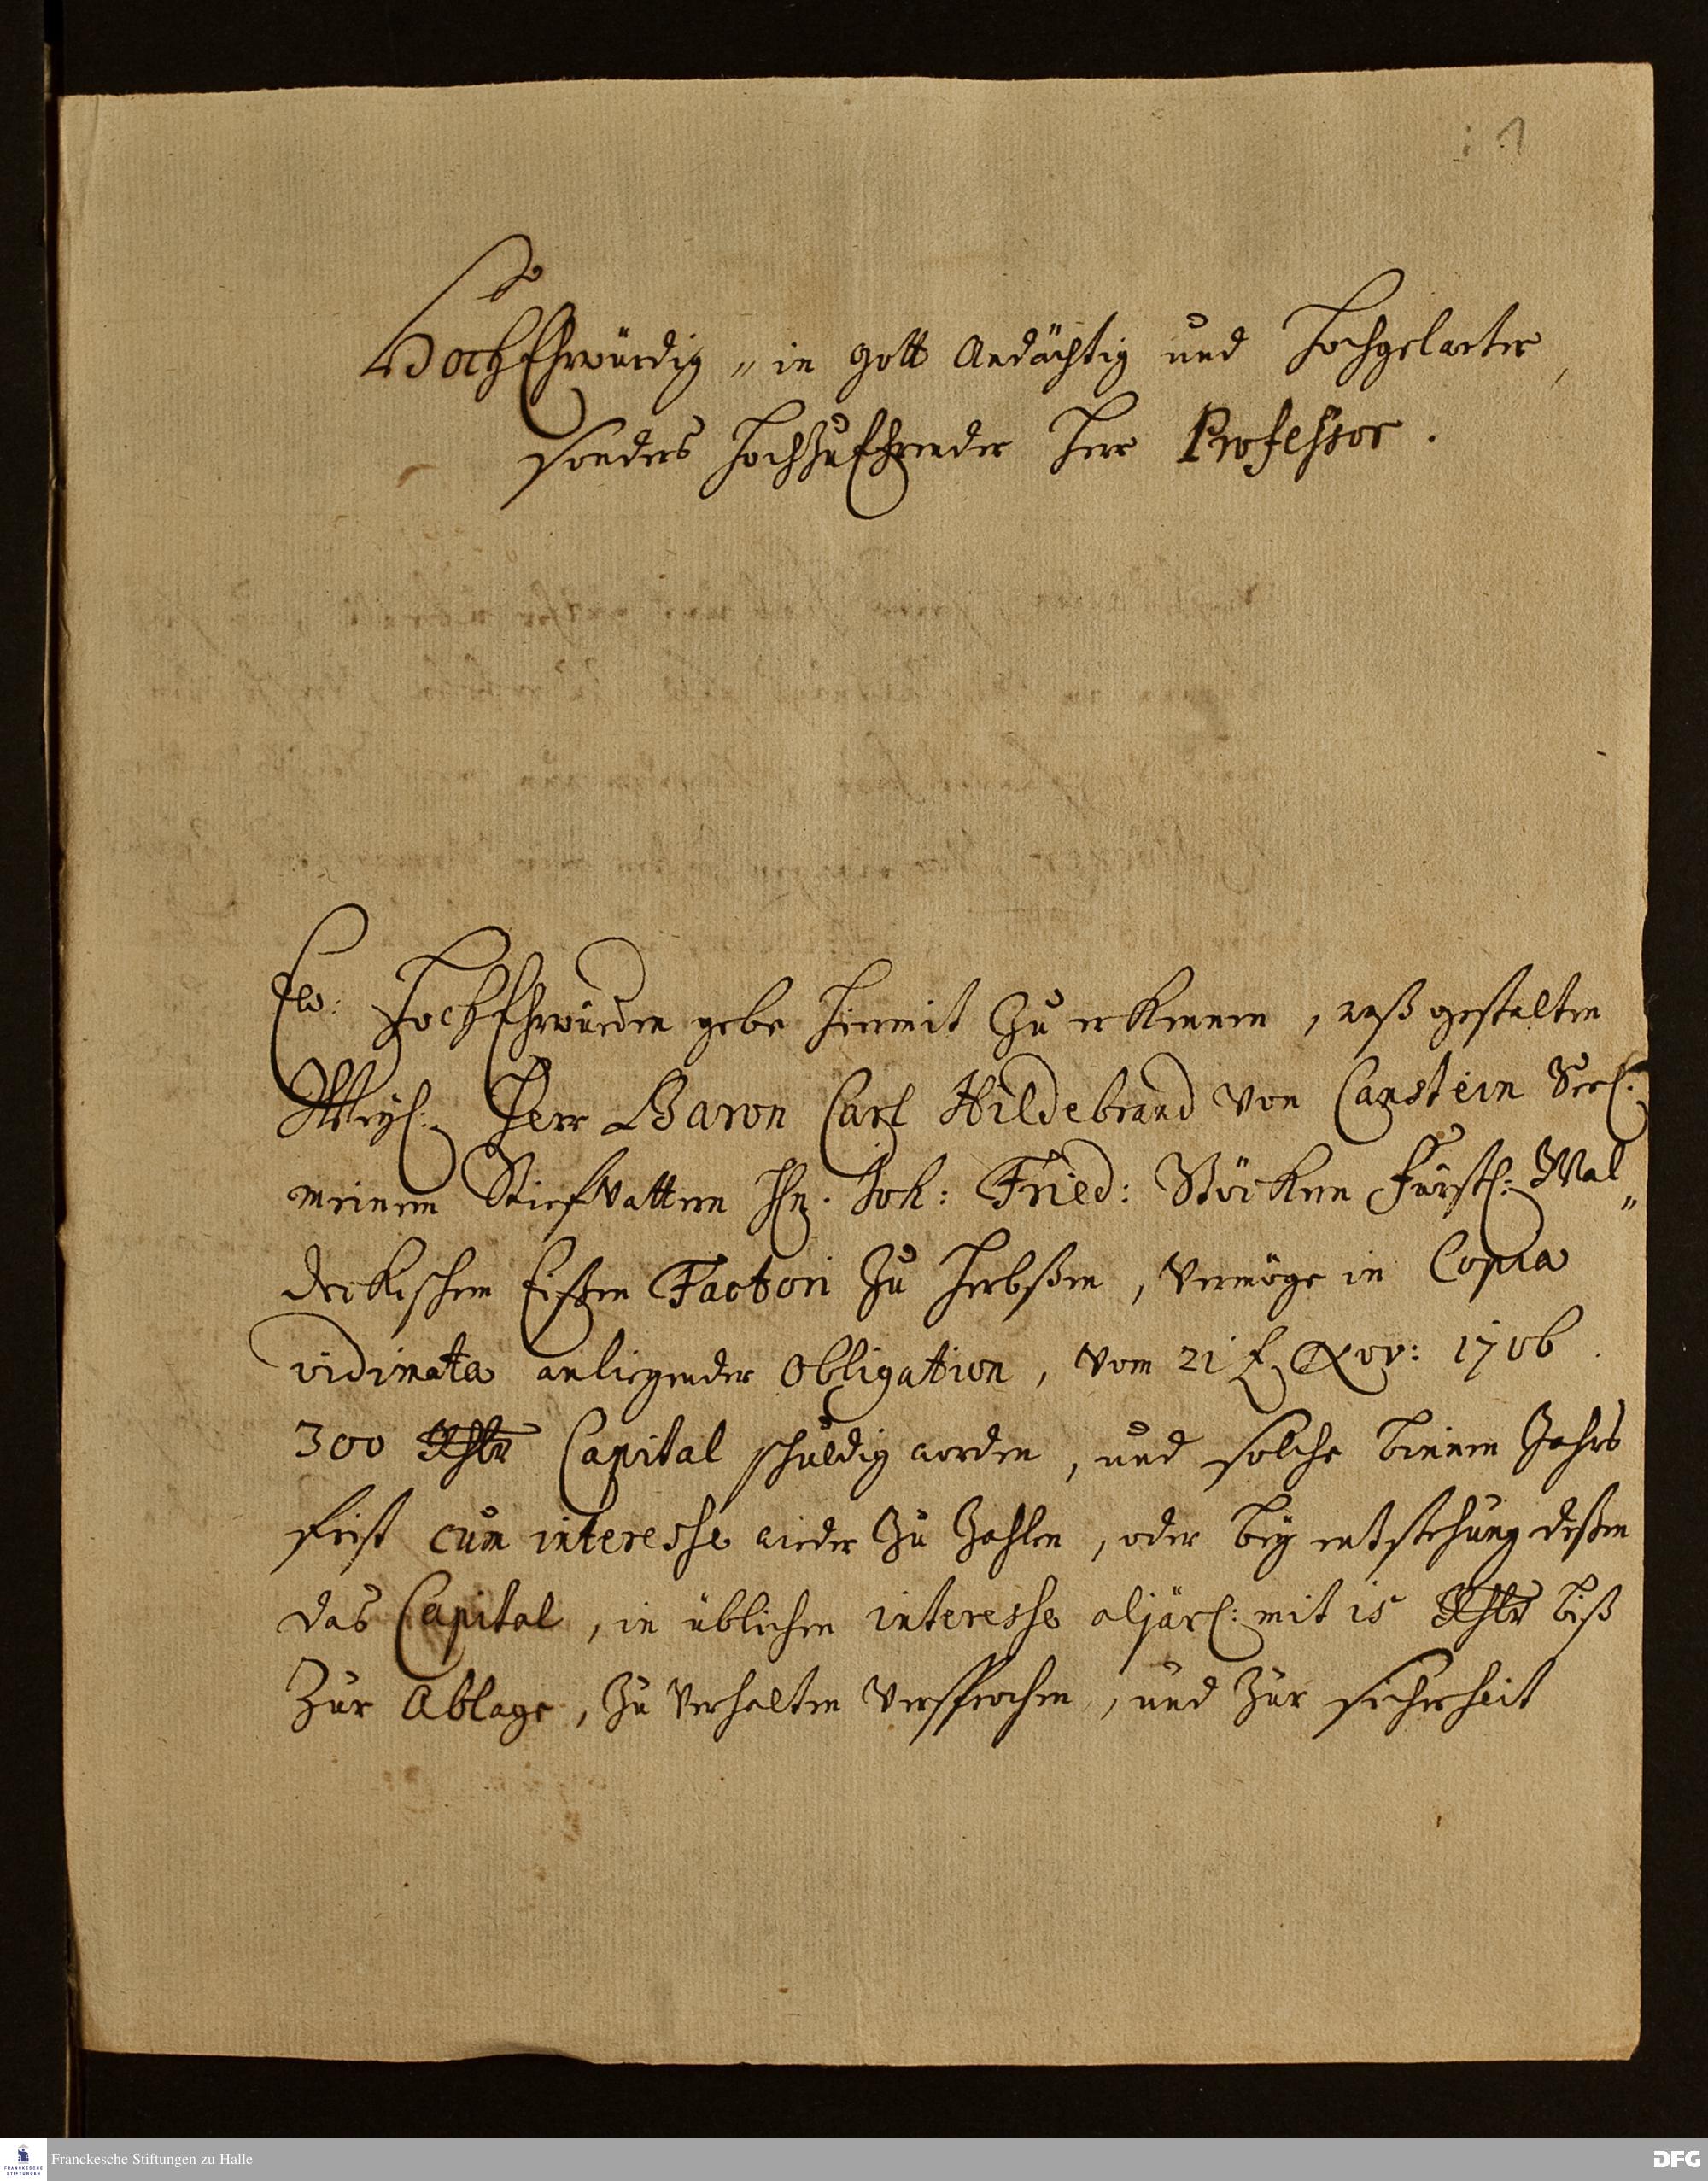 HochEhrwürdig „ in gott Andächtig und Hochgelarter,
sonders HochzuEhrender Herr Professor.
Ew: HochEhrwürden gebe hiermit zu erkennen, waß gestalten
Weyl: Herr Baron Carl Hildebrand von Canstein Seel:
meinem Stiefvattern Hn. Joh: Fried: Föcken Fürstl: Wal„
deckischem Eißen Factori zu Herbßen, vermöge in Copia
vidimata anliegender Obligation, vom 21 t 1706.
300 Rthlr Capital schuldig worden, und solche binnen Jahrs
frist cum interesse wieder zu zahlen, oder bey entstehung deßen
das Capital, in üblichen interesse aljärl: mit 15 Rthlr biß
zur Ablage, zu verhalten versprochen, und zur sicherheit
Franckesche Stiftungen zu Halle
FRANCKESCHE
STIFTUNGEN
DFG